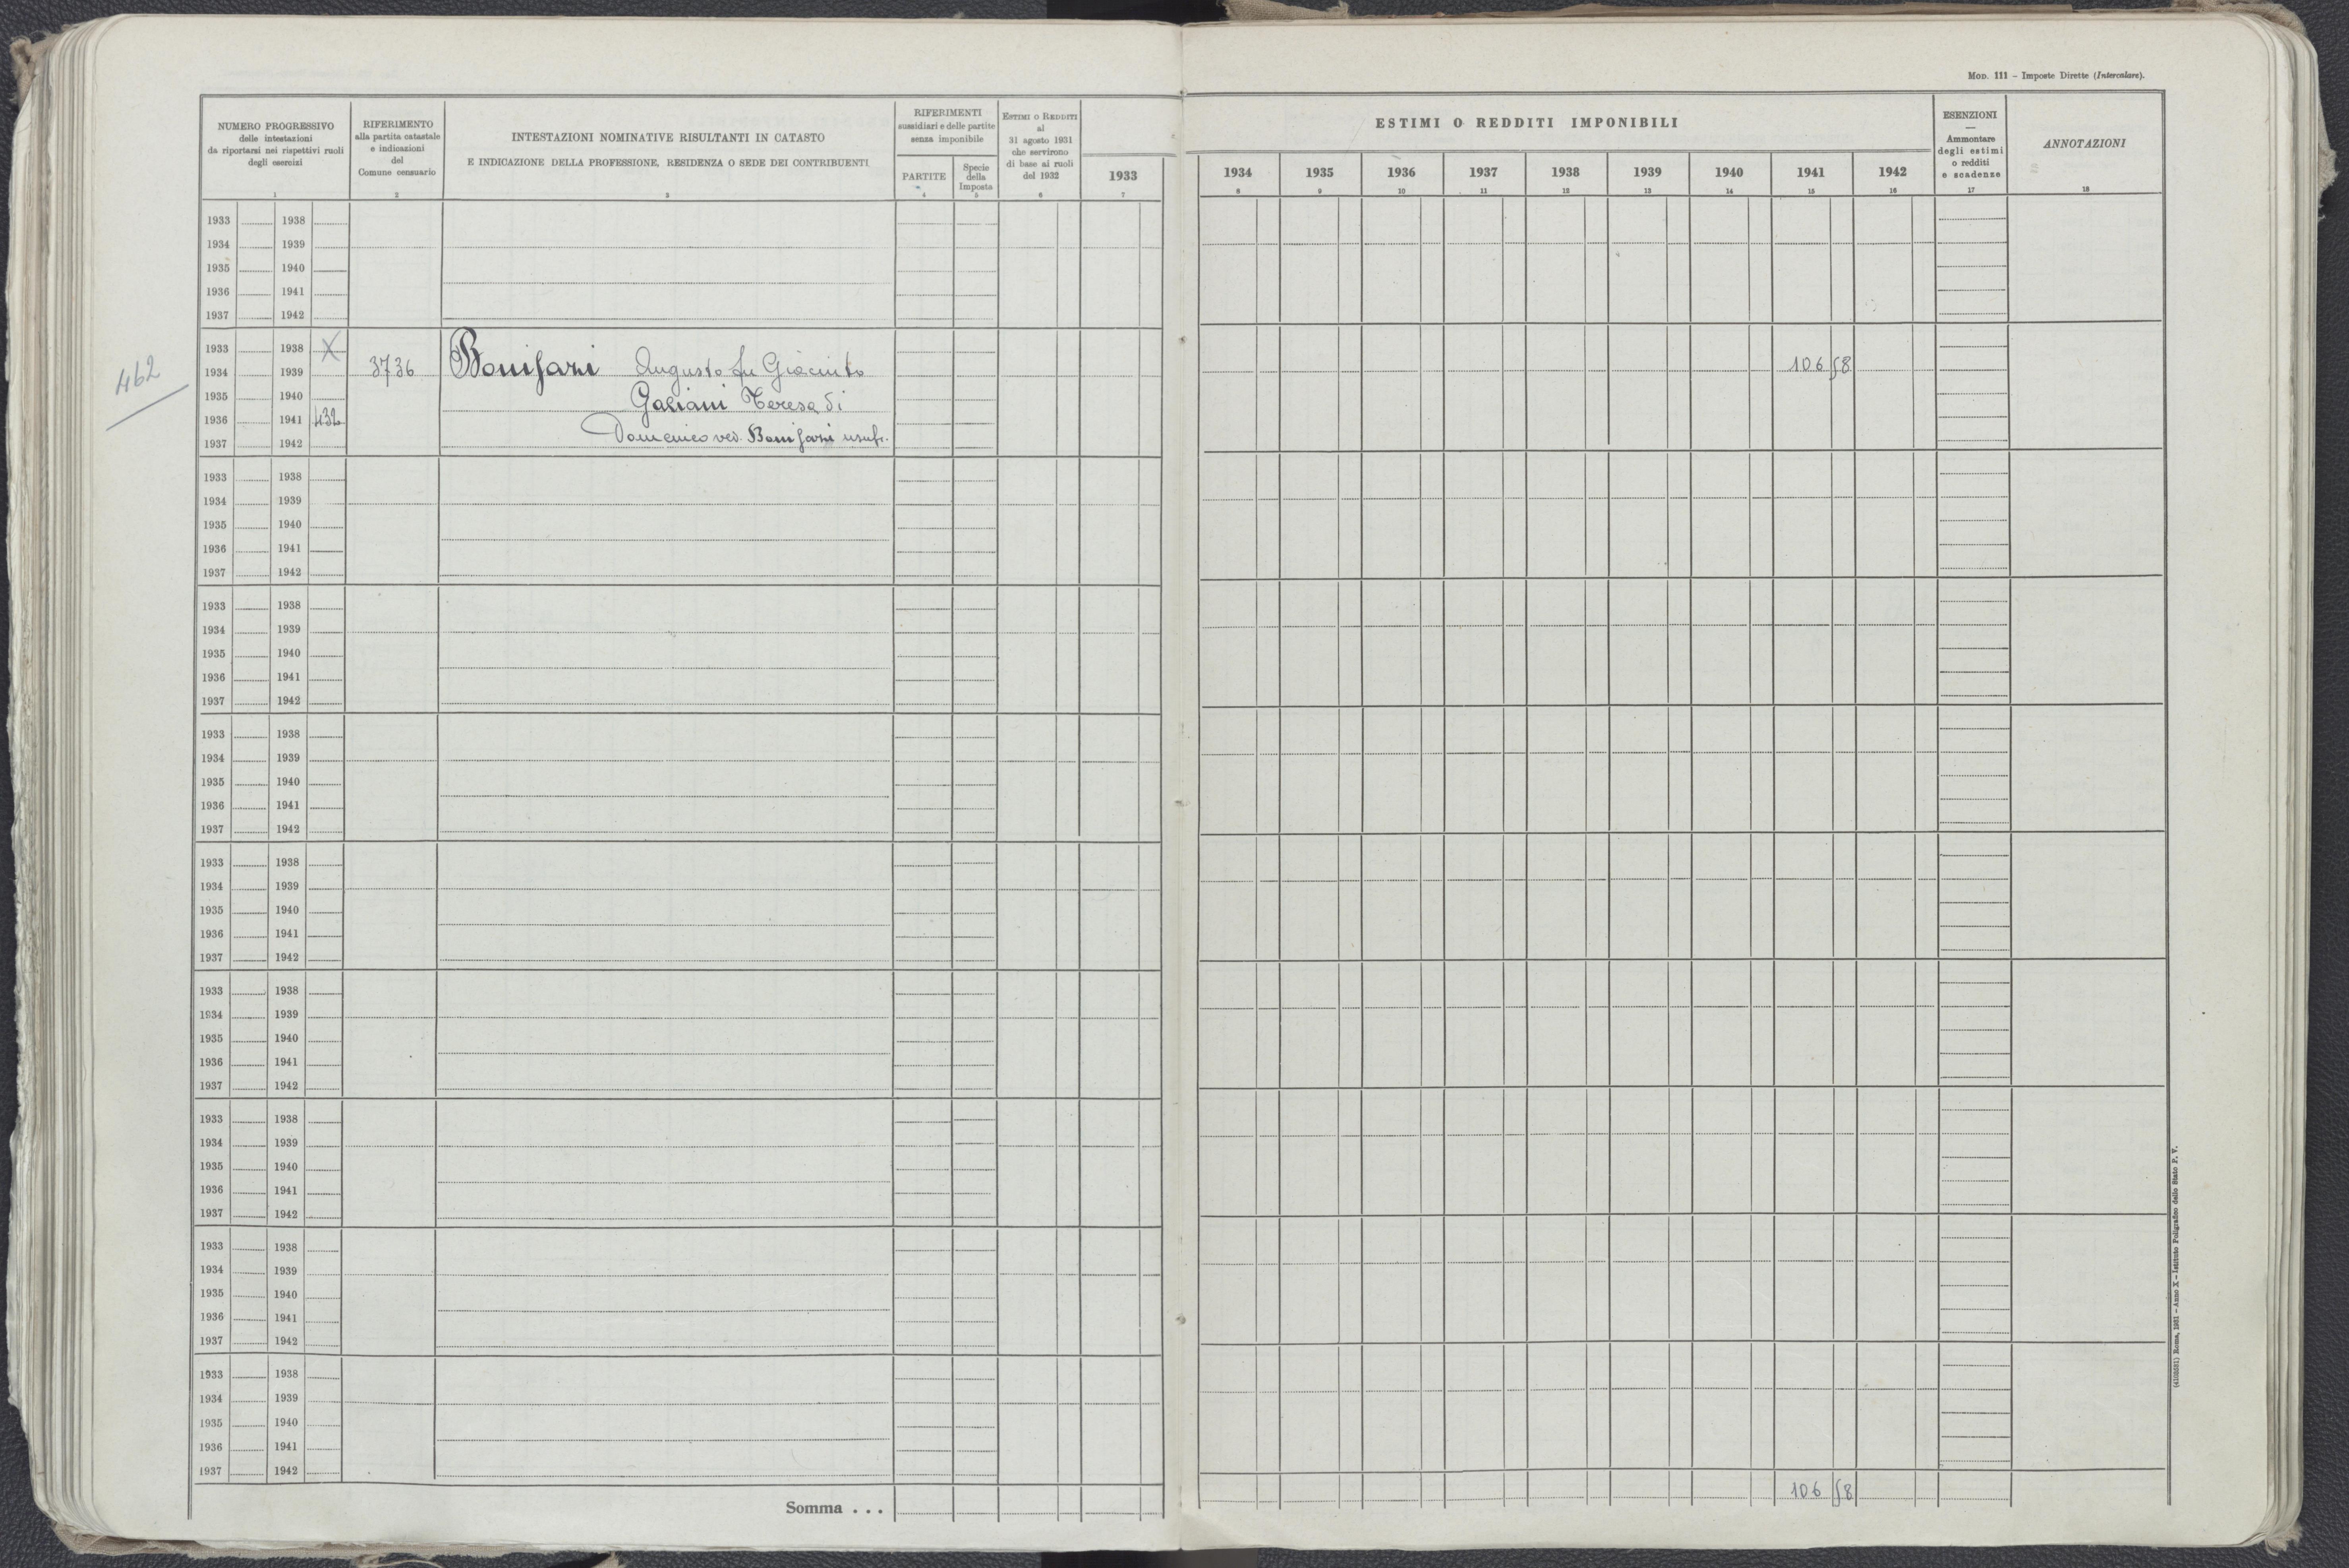 Mod. 111 – Imposte Dirette (Intercalare).
NUMERO PROGRESSIVO
delle intestazioni
da riportarsi nei rispettivi ruoli
degli esercizi
1
RIFERIMENTO
alla partita catastale
e indicazioni
del
Comune censuario
2
INTESTAZIONI NOMINATIVE RISULTANTI IN CATASTO
E INDICAZIONE DELLA PROFESSIONE, RESIDENZA O SEDE DEI CONTRIBUENTI
3
RIFERIMENTI
sussidiari e delle partite
senza imponibile
PARTITE
4
Specie
della
Imposta
5
Estimi o Redditi
al
31 agosto 1931
che servirono
di base ai ruoli
del 1932
6
1933
7
ESTIMI O REDDITI IMPONIBILI
1934 1935 1936 1937 1938 1939 1940 1941 1942
8 9 10 11 12 13 14 15 16
ESENZIONI
—
Ammontare
degli estimi
o redditi
e scadenze
17
ANNOTAZIONI
18
1933 1938
1934 1939
1935 1940
1936 1941
1937 1942
462
1933 1938 X
1934 1939 3736 Bonifazi Augusto fu Giacinto 106 58
1935 1940 Galiani Teresa di
1936 1941 432
1937 1942 Domenico ved. Bonifazi usufr.
1933 1938
1934 1939
1935 1940
1936 1941
1937 1942
1933 1938
1934 1939
1935 1940
1936 1941
1937 1942
1933 1938
1934 1939
1935 1940
1936 1941
1937 1942
1933 1938
1934 1939
1935 1940
1936 1941
1937 1942
1933 1938
1934 1939
1935 1940
1936 1941
1937 1942
1933 1938
1934 1939
1935 1940
1936 1941
1937 1942
1933 1938
1934 1939
1935 1940
1936 1941
1937 1942
1933 1938
1934 1939
1935 1940
1936 1941
1937 1942
Somma . . . 106 58
Roma, 1931 – Anno X – Istituto Poligrafico dello Stato P. V.